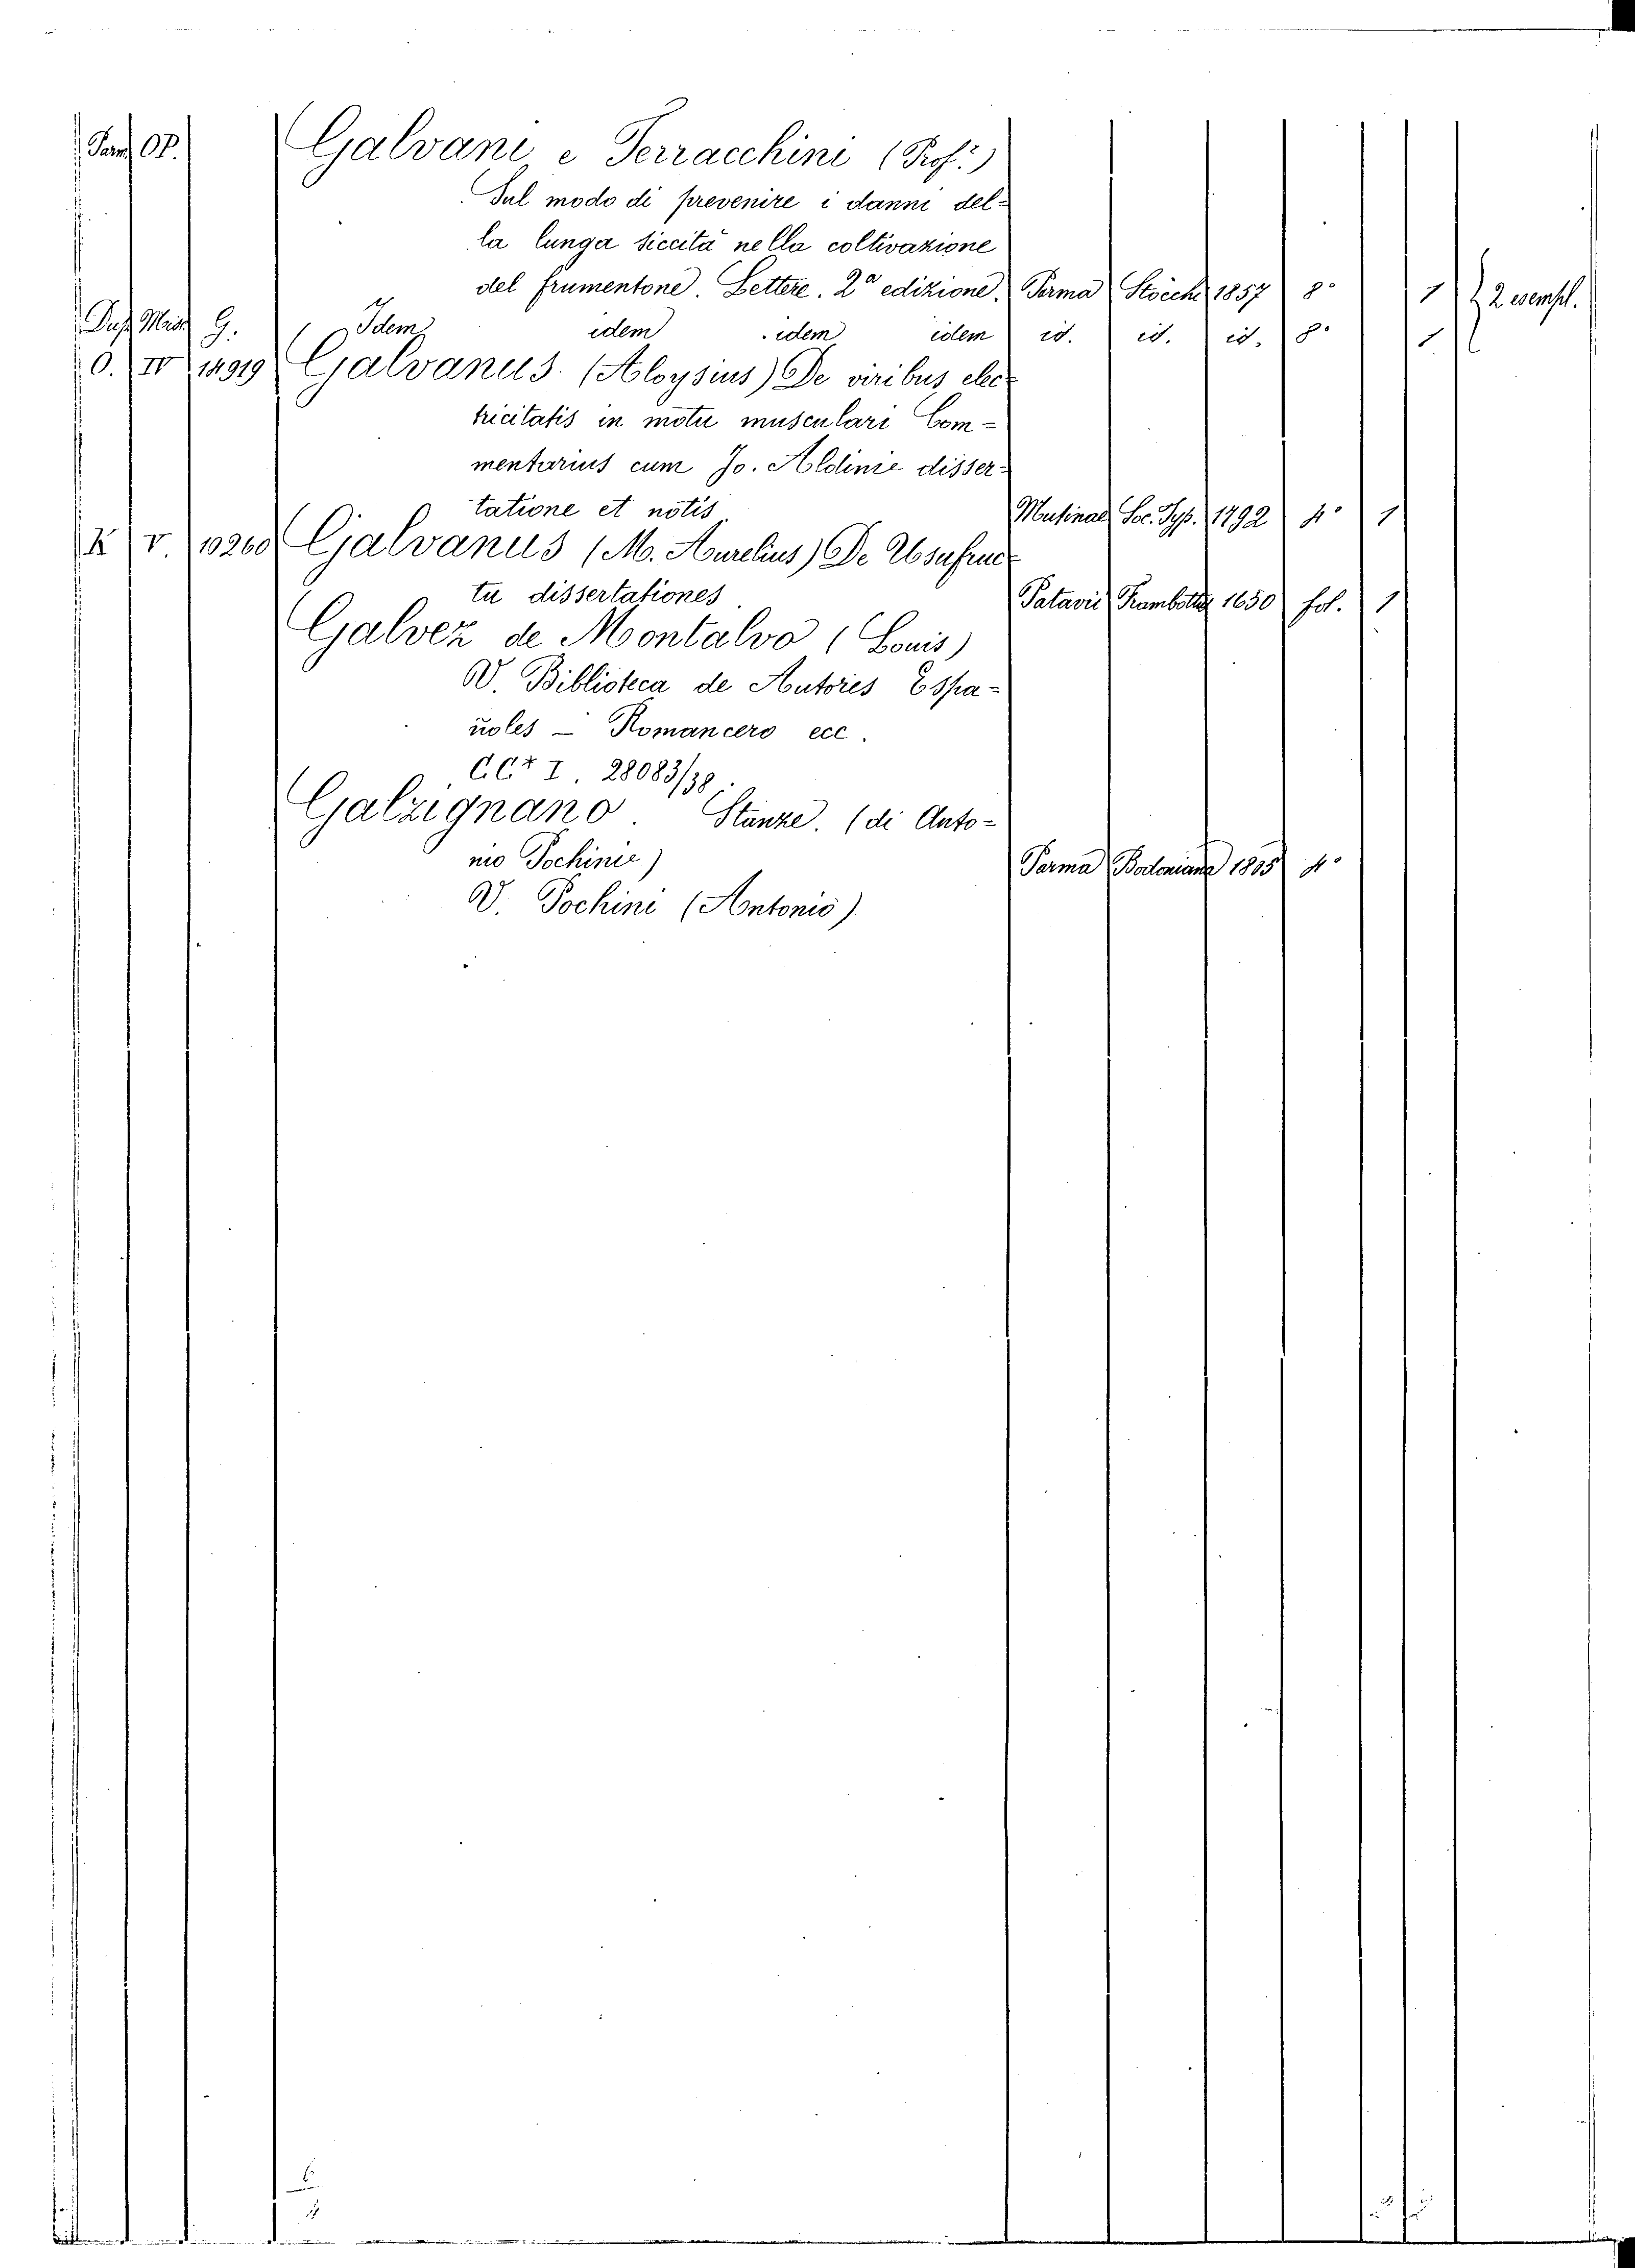 Parm. OP. Galvani e Terracchini (Prof.i)
Sul modo di prevenire i danni del=
la lunga siccità nella coltivazione
del frumentone. Lettere. 2a edizione. Parma Stocchi 1857 8° 1 2 esempl.
G. Idem idem idem idem id. id. id. 8° 1
O. IV 14919 Galvanus (Aloysius) De viribus elec=
tricitatis in motu musculari Com=
mentarius cum Jo. Aldini disser=
tatione et notis Mutinae Soc. Typ. 1792 4° 1
K V 10260 Galvanus (M. Aurelius) De Usufruc=
tu dissertationes Patavii Frambotti 1650 fol. 1
Galvez de Montalvo (Louis)
V. Biblioteca de Autores Espa=
ñoles — Romancero ecc.
CC* I. 28083/38.
Galzignano. Stanze. (di Anto=
nio Pochini) Parma Bodoniana 4°
V. Pochini (Antonio)